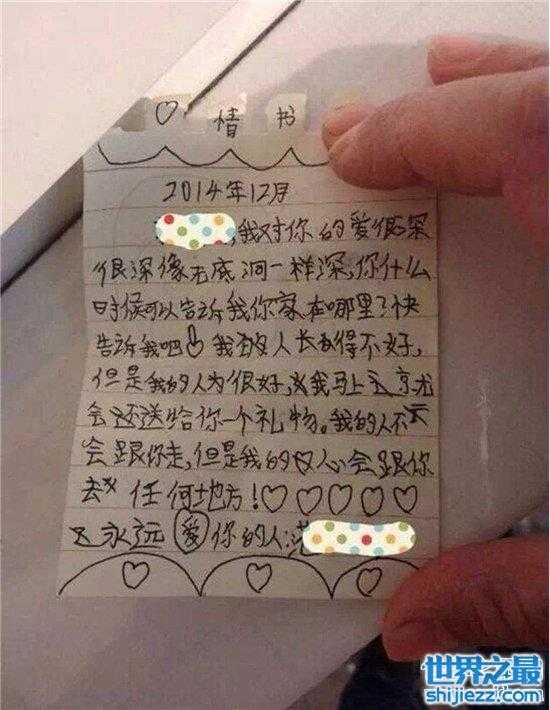 ♡ 情书
2014年12月
,我对你的爱很深
很深像无底洞一样深,你什么
时候可以告诉我你家在哪里?快
告诉我吧 我的人长的得不好,
但是我的人为很好,我马上
会还送给你一个礼物。我的人不
会跟你走,但是我的心会跟你
去任何地方!♡♡♡♡♡
永远爱你的人:
世界之最
shijiezz.com